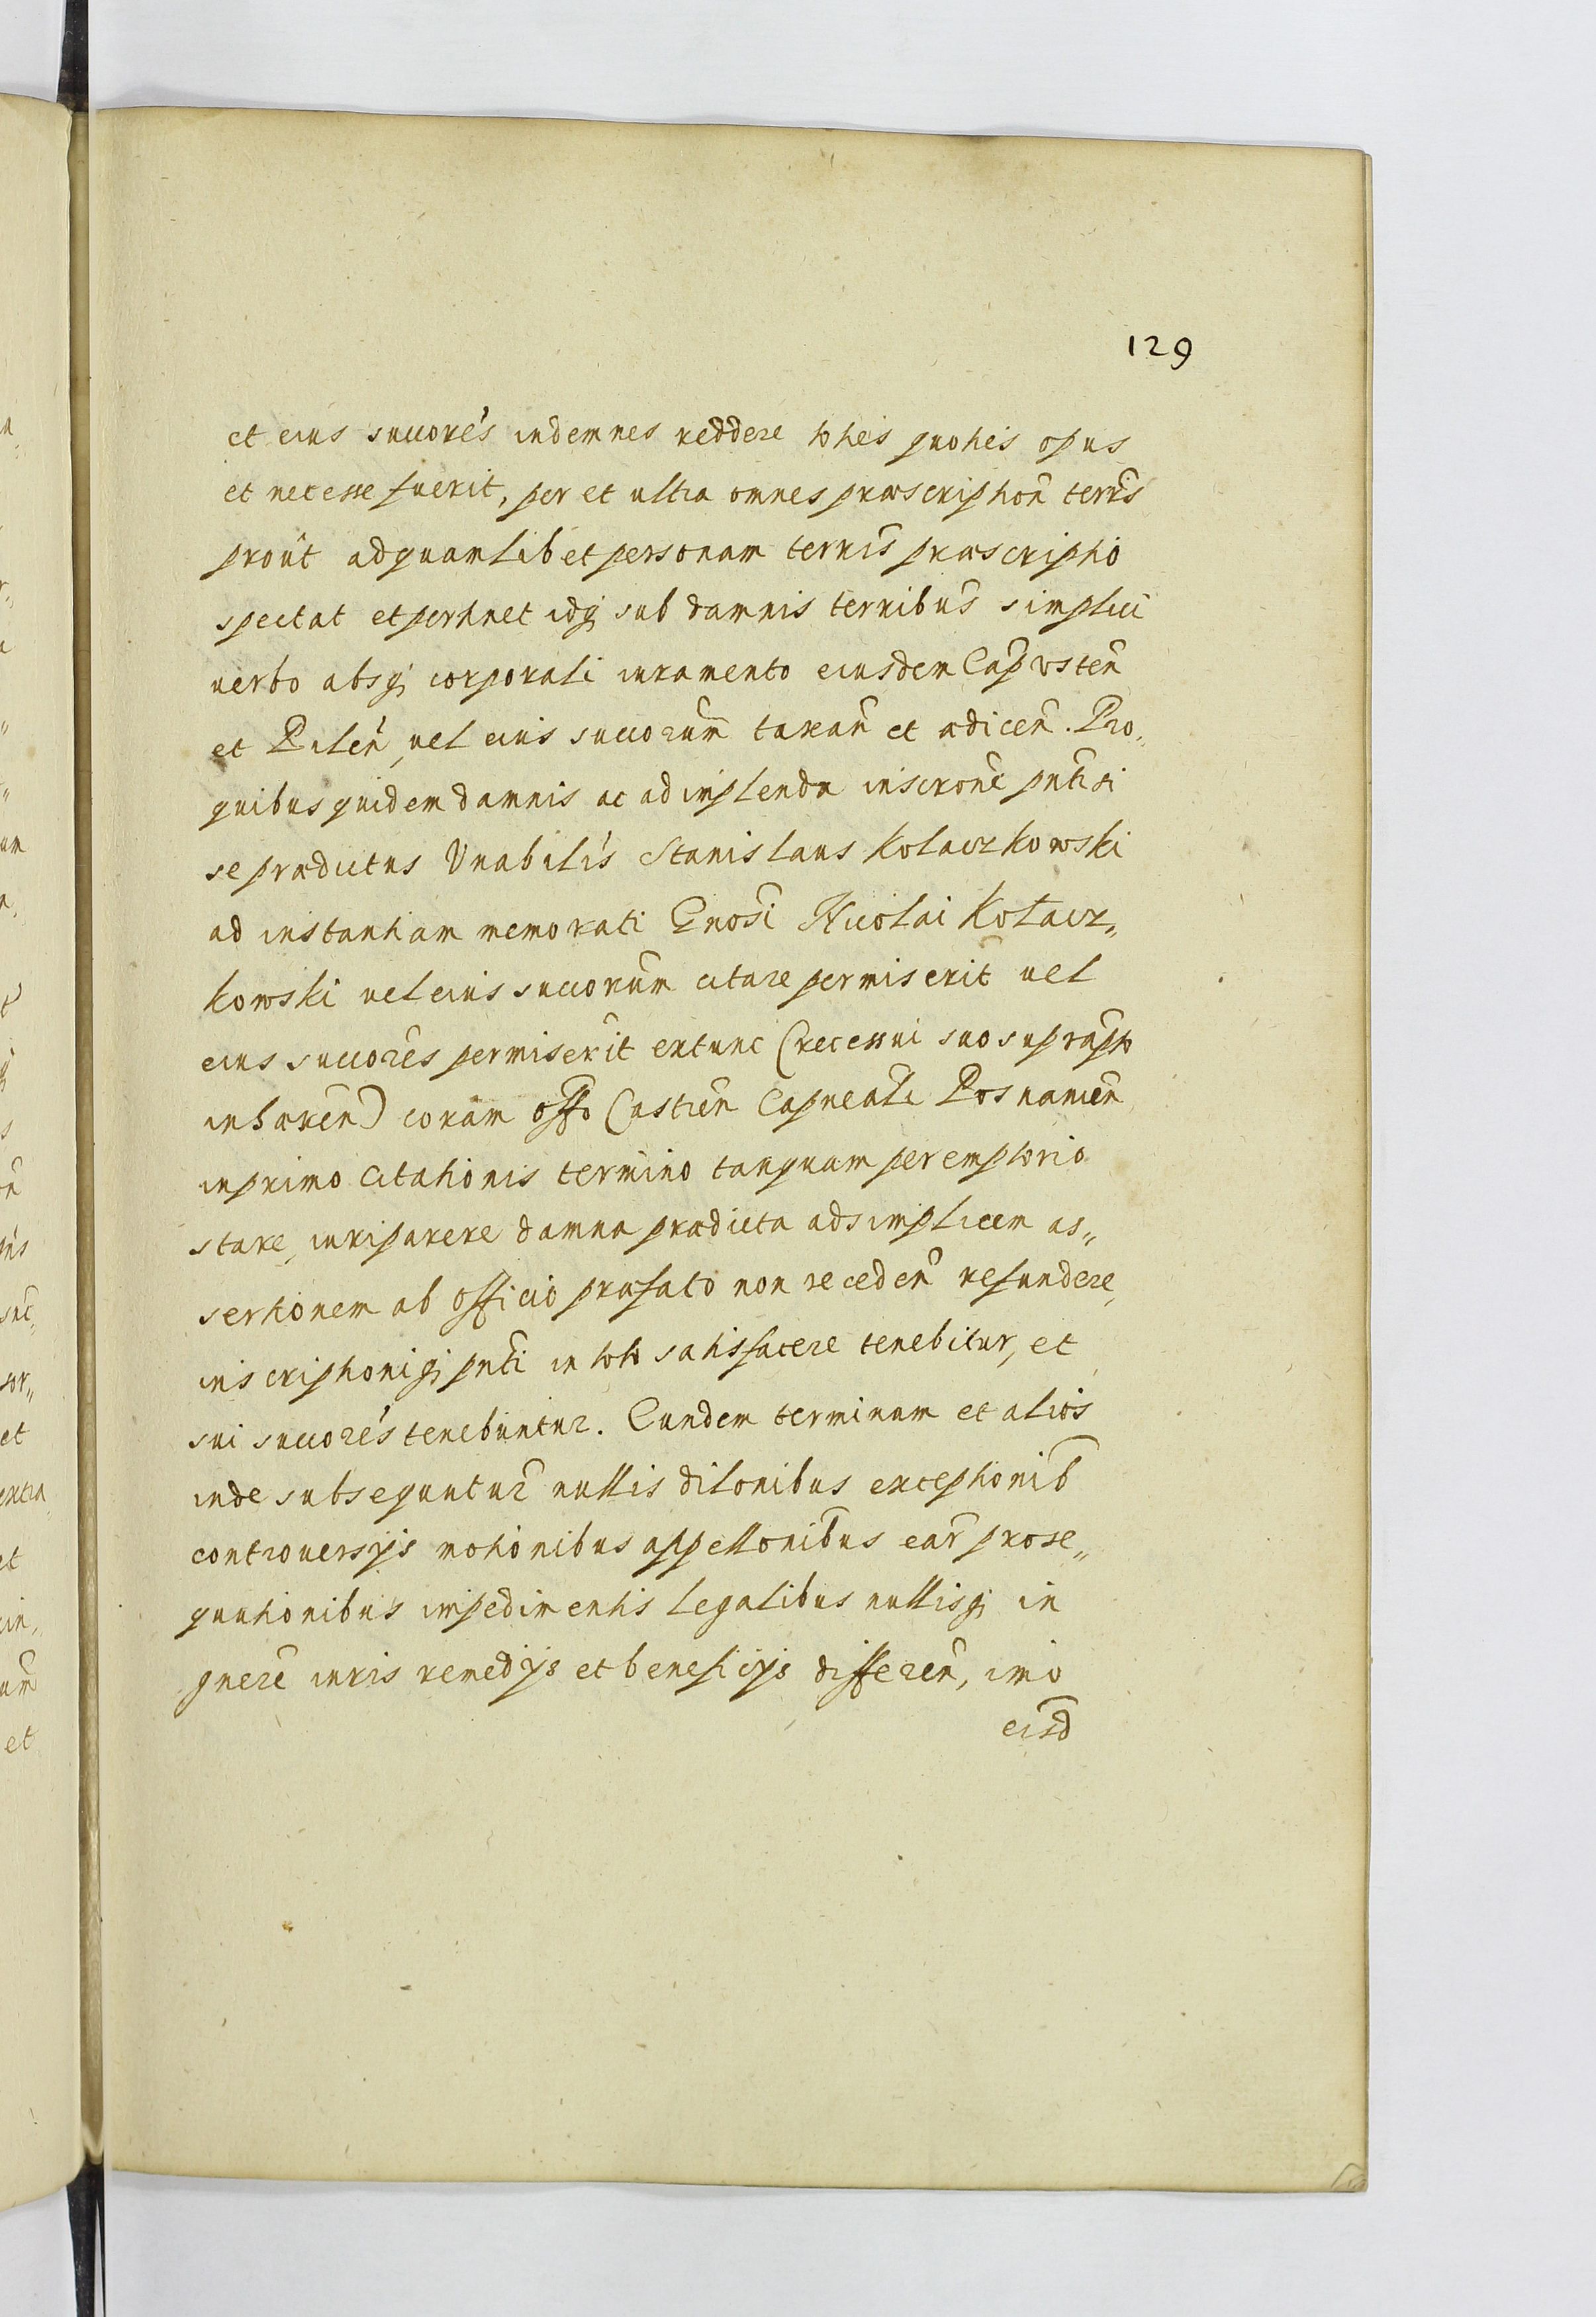 129
et eius succores indemnes reddere toties quoties opus
et necesse fuerit, per et ultra omnes præscription terrīs
prout ad quamlibet personam terris præscriptio
spectat et pertinet idq sub damnis terribūs simplici
verbo absq corporali iuramento eiusdem Cap
et Pilen, vel eius succorum taxan et adicen. Pro„
quibus quidem damnis ac adimplenda inscrone pnti si
se prædictus Vnabilis Stanislaus Kołaczkowski
ad instantiam memorati Gnosi Nicolai Kołacz„
kowski vel eius succorum citare permiserit vel
eius succores permiserit extunc (recessui suo suprapto
inhæren) coram offo Castren Capneali Posnanien
in primo citationis termino tanquam peremptorio
stare, iuri parere damna prædicta ad simplicem as„
sertionem ab officio præfato non receden refundere,
inscriptioniq pnti in toto satisfacere tenebitur, et
sui succores tenebuntur. Eundem terminum et alios
inde subsequentur nullis dilonibus exceptionib
controuersijs motionibus appellonibus ear prose„
qutionibus impedimentis legalibus nullisq in
gnere iuris remedijs et beneficijs differen, imo
eisd